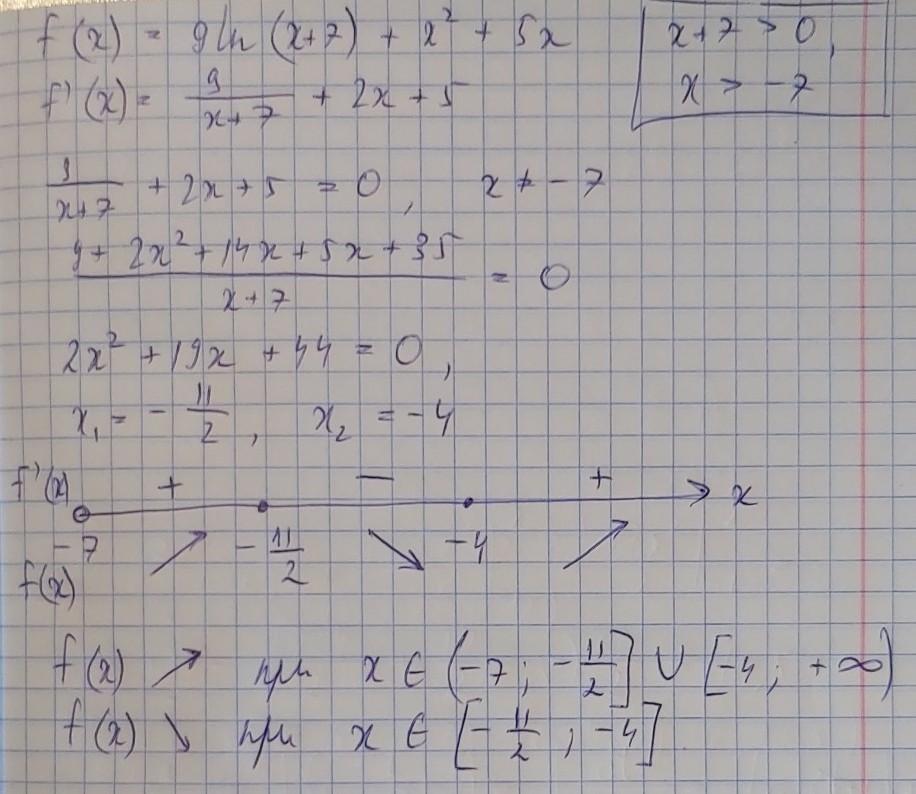 f(x) = 9ln(x+7) + x² + 5x
x+7 > 0,
x > -7
f'(x) = 9/(x+7) + 2x + 5
9/(x+7) + 2x + 5 = 0, x ≠ -7
(9 + 2x² + 14x + 5x + 35)/(x+7) = 0
2x² + 19x + 44 = 0,
x₁ = -11/2, x₂ = -4
f'(x) + − + x
-7 ↗ -11/2 ↘ -4 ↗
f(x)
f(x) ↗ при x ∈ (-7; -11/2] ∪ [-4; +∞)
f(x) ↘ при x ∈ [-11/2; -4]